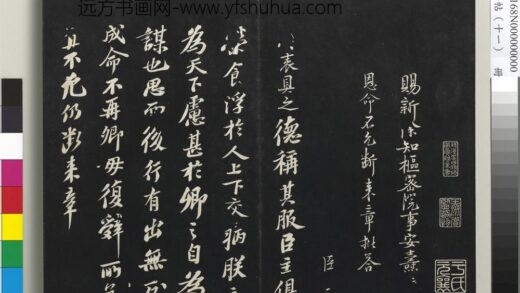 远方书画网-www.yfshuhua.com
168N000000000
帖(十一) 冊
賜新除知樞密院事安燾
恩命不允斷來章批答
臣
省表具之德稱其服臣主俱
榮食浮於人上下交病朕
為天下慮甚於卿之自為
謀也思而後行有出無
成命不再卿毋復辭所
宜不允仍斷來章